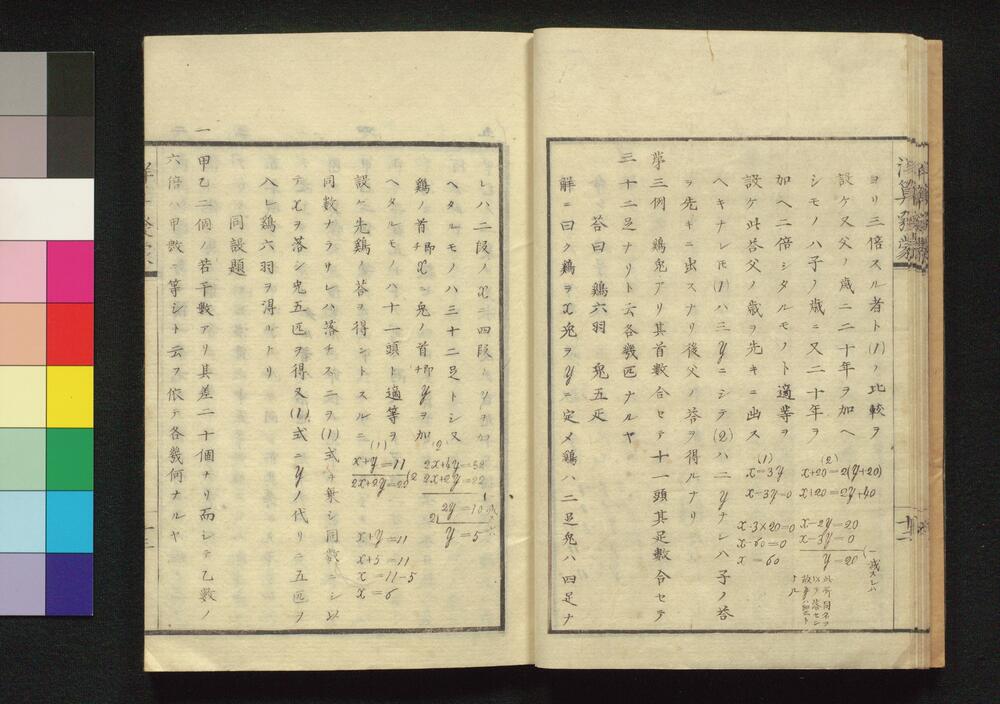 ヨリ三倍スル者ト(1)ノ比較ヲ
設ケ又父ノ歳ニ二十年ヲ加ヘ
シモノハ子ノ歳ニ又二十年ヲ
加ヘ二倍シタルモノト適等ヲ
設ケ此答父ノ歳ヲ先キニ出ス
ヘキナレ𪜈(1)ハ三yニシテ(2)ハ二yナレハ子ノ答
ヲ先キニ出スナリ後父ノ答ヲ得ルナリ
(2)
x+20=2(y+20)
x+20=2y+40
x-2y=20
x-3y=0
y=20
減スレハ
(1)
x=3y
x-3y=0
x-3×20=0
x-60=0
x=60
第三例 鶏兎アリ其首数合セテ十一頭其足数合セテ
三十二足ナリト云各幾匹ナルヤ
答曰鶏六羽 兎五疋
解ニ曰ク鶏ヲx兎ヲyニ定メ鶏ハ二足兎ハ四足ナ
レハ二段ノx
ヘタルモノハ三十二足トシ又
鶏ノ首即x兎ノ首即yヲ加
ヘタルモノハ十一頭ト適等ヲ
設ケ先鶏ノ答ヲ得ントスルニ
同数ナラサレハ落チスニヲ(1)式ニ乗シ同数ニシ以
テxヲ落シ兎五匹ヲ得又(1)式ニyノ代リニ五匹ヲ
入レ鶏六羽ヲ得ルナリ
(2)
2x+4y=32
2x+2y=22
2y=10
y=5
(1)
x+y=11
2x+2y=22
x+y=11
x+5=11
x=11-5
x=6
同設題
一 甲乙二個ノ若干数アリ其差二十個ナリ而シテ乙数ノ
六倍ハ甲数ニ等シト云フ依テ各幾何ナルヤ